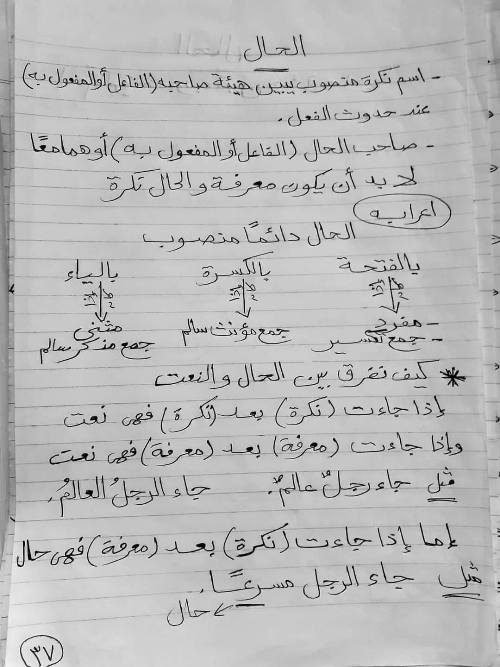 الحال
- اسم نكرة منصوب يبين هيئة صاحبه (الفاعل أو المفعول به)
عند حدوث الفعل.
- صاحب الحال (الفاعل أو المفعول به) أو هما معًا
لا بد أن يكون معرفة والحال نكرة
اعرابه
الحال دائمًا منصوب
بالفتحة بالكسرة بالياء
- مفرد جمع مؤنث سالم مثنى
- جمع تكسير جمع مذكر سالم
* كيف تفرق بين الحال والنعت
إذا جاءت (نكرة) بعد (نكرة) فهى نعت
وإذا جاءت (معرفة) بعد (معرفة) فهى نعت
مثل جاء رجلٌ عالمٌ. جاء الرجلُ العالمُ.
إما إذا جاءت (نكرة) بعد (معرفة) فهى حال
مثل جاء الرجل مسرعًا.
حال
٣٧